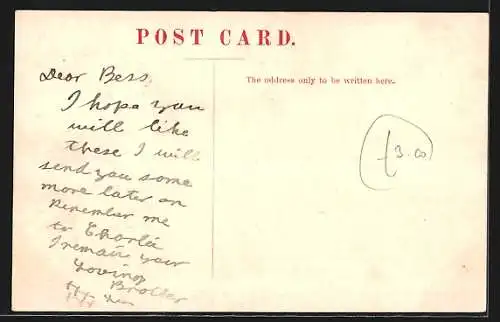 POST CARD.
Dear Bess,
I hope you
will like
these I will
send you some
more later on
Remember me
to Charlie
I remain your
Loving
Brother
The address only to be written here.
£3.00